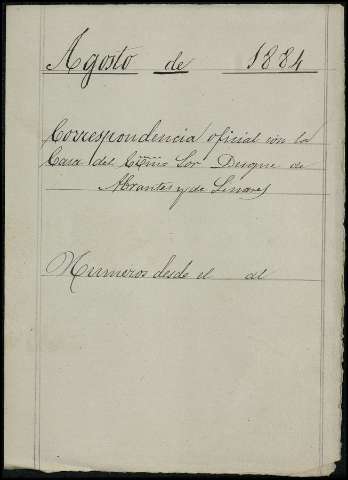 Agosto de 1884
Correspondencia oficial con la
Casa del Excmo Sor Duque de
Abrantes y de Linares
Numeros desde el al